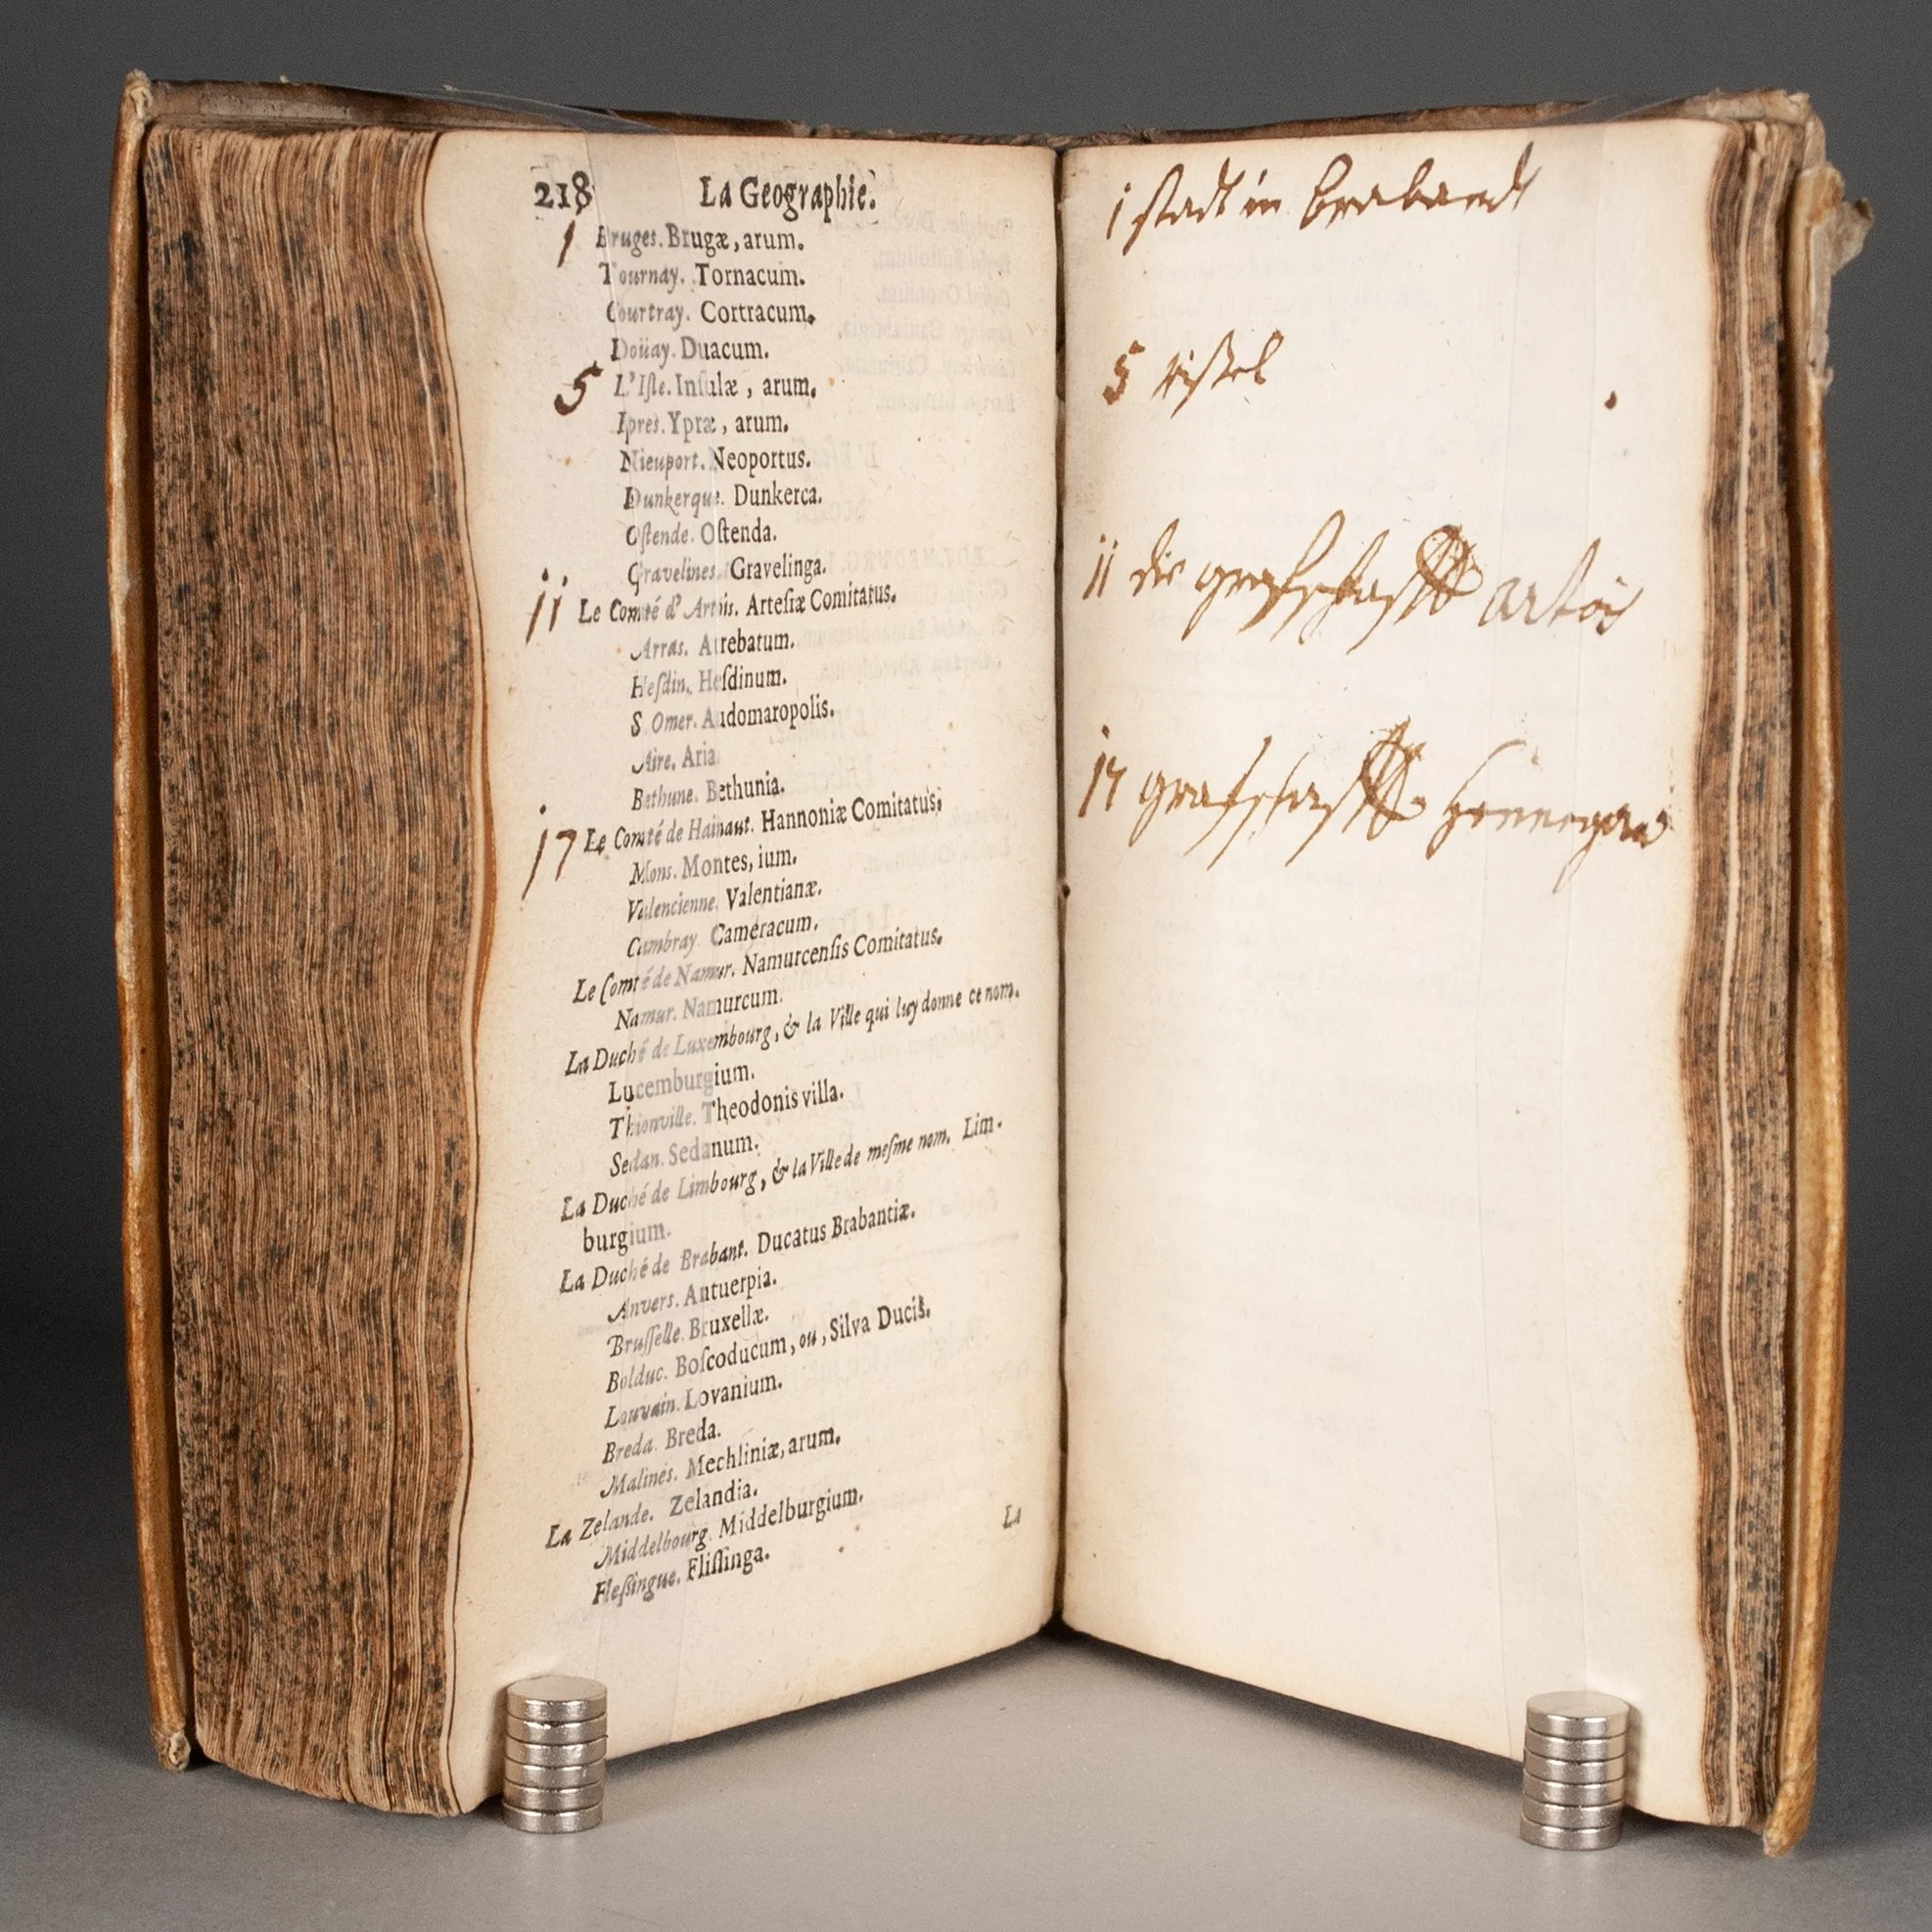 218 La Geographie.
1 Bruges. Brugæ, arum.
Tournay. Tornacum.
Courtray. Cortracum.
Doüay. Duacum.
5 L'Iſle. Inſulæ, arum.
Ipres. Ypræ, arum.
Nieuport. Neoportus.
Dunkerque. Dunkerca.
Oſtende. Oſtenda.
Gravelines. Gravelinga.
11 Le Comté d'Artois. Arteſiæ Comitatus.
Arras. Atrebatum.
Heſdin. Heſdinum.
S Omer. Audomaropolis.
Aire. Aria.
Bethune. Bethunia.
17 Le Comté de Hainaut. Hannoniæ Comitatus.
Mons. Montes, ium.
Valencienne. Valentianæ.
Cambray. Cameracum.
Le Comté de Namur. Namurcenſis Comitatus.
Namur. Namurcum.
La Duché de Luxembourg, & la Ville qui luy donne ce nom.
Lucemburgium.
Thionville. Theodonis villa.
Sedan. Sedanum.
La Duché de Limbourg, & la Ville de meſme nom. Lim-
burgium.
La Duché de Brabant. Ducatus Brabantiæ.
Anvers. Antuerpia.
Bruſſelle. Bruxellæ.
Bolduc. Boſcoducum, ou, Silva Ducis.
Louvain. Lovanium.
Breda. Breda.
Malines. Mechliniæ, arum.
La Zelande. Zelandia.
Middelbourg. Middelburgium.
Fleſſingue. Fliſſinga.
La
1 stadt in brabandt
5 risſel
11 die grafschafft artois
17 grafschafft hennegau